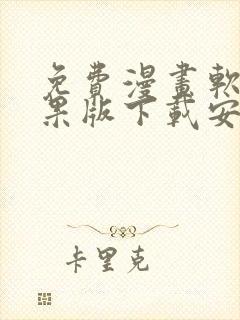 免費漫畫軟
果版下載安
卡里克